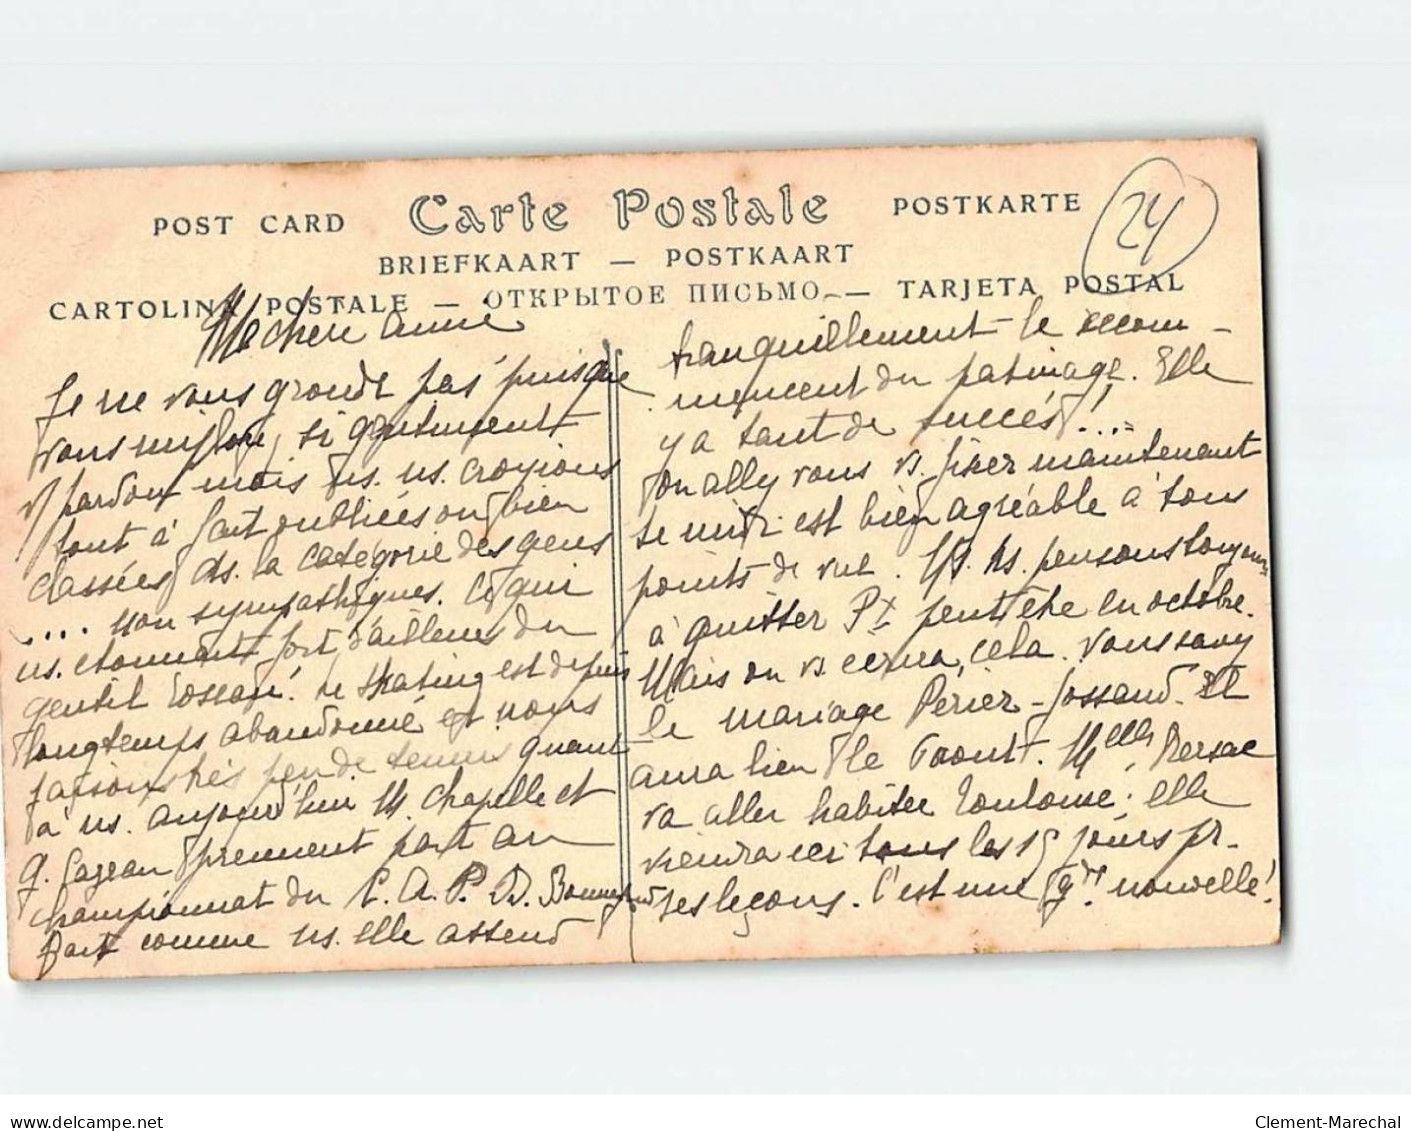 POST CARD Carte Postale POSTKARTE
24
BRIEFKAART — POSTKAART
CARTOLINA POSTALE — ОТКРЫТОЕ ПИСЬМО — TARJETA POSTAL
Ma chère amie
Je ne vous gronde pas puisque
vous si gentiment
pardon mais ns. croyions
tout à fait oubliées ou bien
classées ds. la catégorie des gens
.... non sympathiques. Ce qui
ns. étonnait fort d'ailleurs du
gentil Tossan! Le skating est depuis
longtemps abandonné et nous
faisons très peu de tennis quant
à ns. aujourd'hui M. Chapelle et
G. Gazeau prennent part au
championnat du C.A.P. D. Bonnefond
fait comme ns. elle attend
tranquillement le recom-
mencement du patinage. Elle
y a tant de succès!....
Où allez vous vs. fixer maintenant
le midi est bien agréable à tous
points de vue. Ns. pensons toujours
à quitter Px peut être en octobre.
Mais on vs. cela. Vous savez
le mariage Périer-Jossaud. Et
aura lieu le Melle Persac
va aller habiter Toulouse. elle
viendra ici tous les 15 jours pr.
ses leçons. C'est une gde nouvelle!
Clement-Marechal
www.delcampe.net